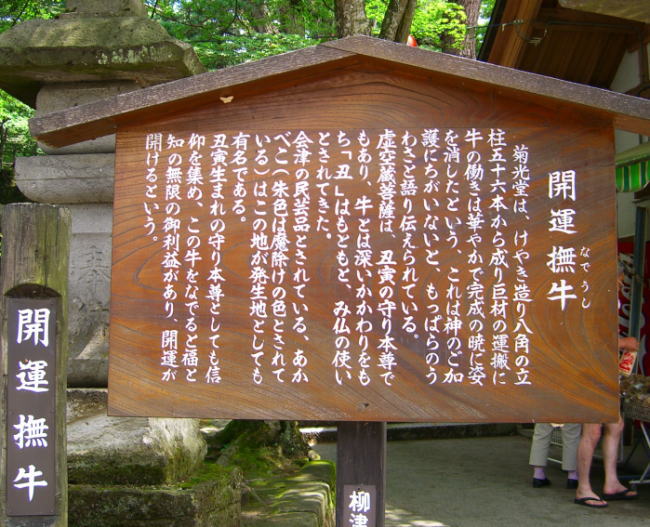 開運撫牛
なでうし
菊光堂は、けやき造り八角の立
柱五十六本から成り巨材の運搬に
牛の働きは華やかで完成の暁に姿
を消したという、これは神のご加
護にちがいないと、もっぱらのう
わさと語り伝えられている。
虚空蔵菩薩は、丑寅の守り本尊で
もあり、牛とは深いかかわりをも
ち「丑」はもともと、み仏の使い
とされてきた。
会津の民芸品とされている、あか
べこ(朱色は魔除けの色とされて
いる)はこの地が発生地としても
有名である。
丑寅生まれの守り本尊としても信
仰を集め、この牛をなでると福と
知の無限の御利益があり、開運が
開けるという。
開運撫牛
柳津